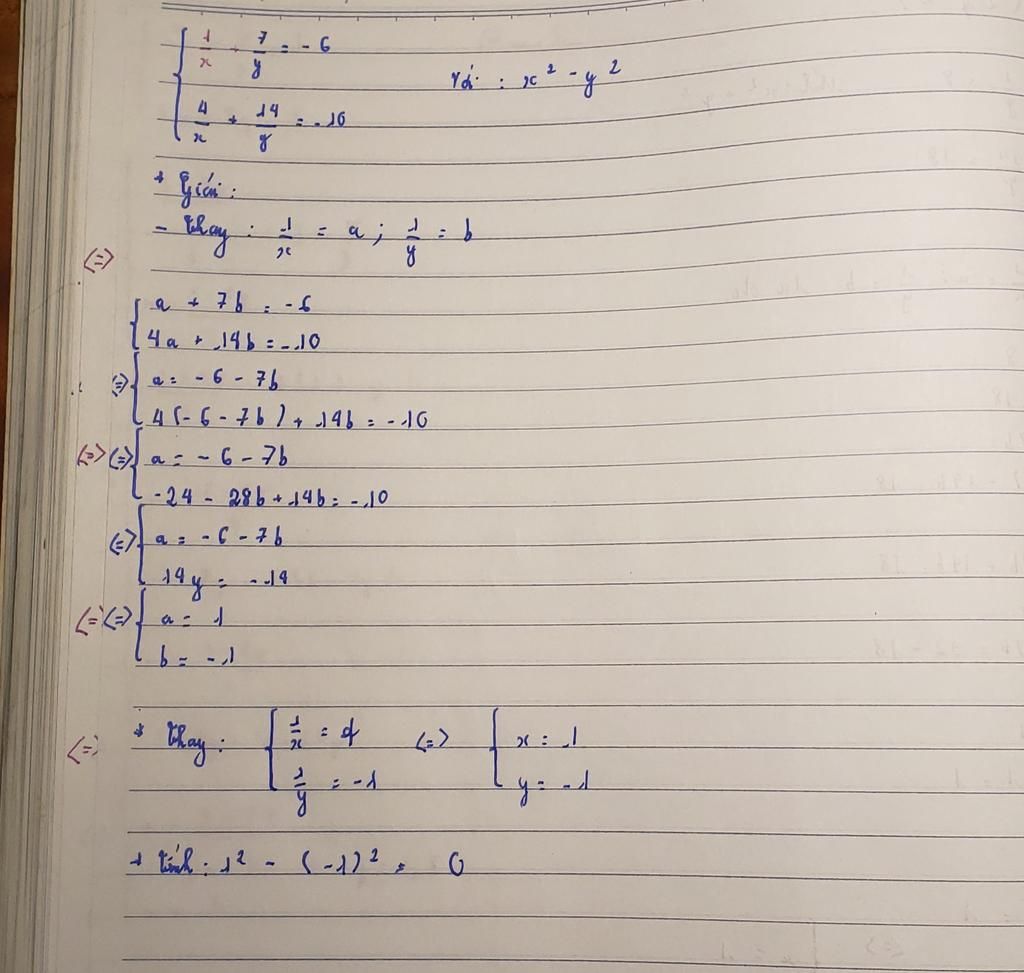 { 1/x + 7/y = -6
Với : x² - y²
4/x + 14/y = -10
* Giải :
- Thay : 1/x = a ; 1/y = b
(=)
{ a + 7b = -6
4a + 14b = -10
(=) { a = -6 - 7b
4(-6 - 7b) + 14b = -10
(=) (=) { a = -6 - 7b
-24 - 28b + 14b = -10
(=) { a = -6 - 7b
14y = -14
(=) (=) { a = 1
b = -1
(=) * Thay : { 1/x = 1 (=) { x = 1
1/y = -1 y = -1
+ Tính : 1² - (-1)² = 0